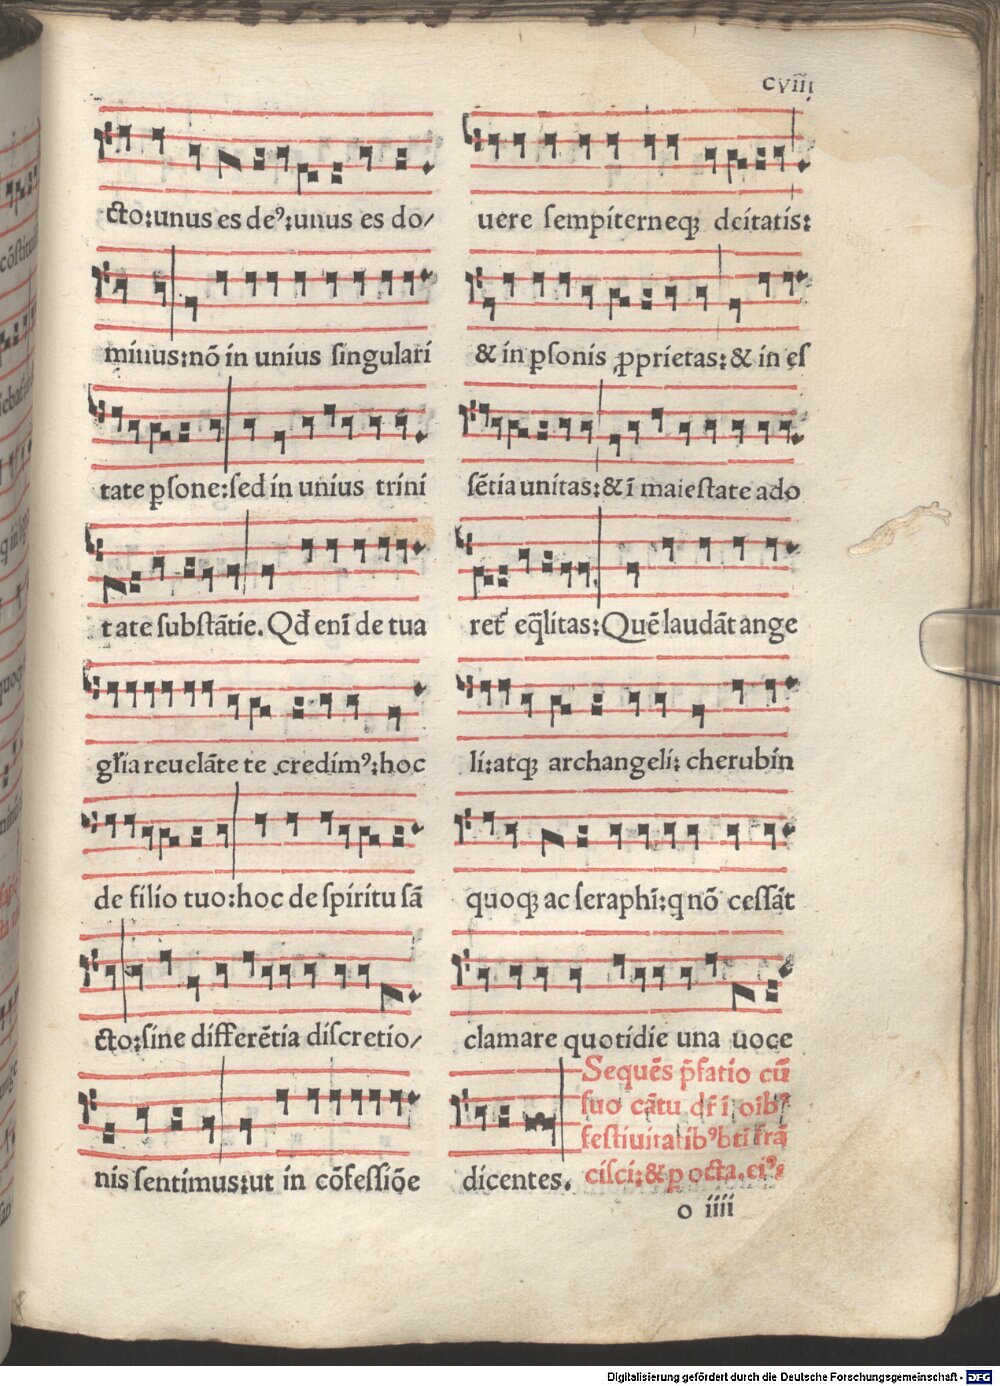 cviii
cto:unus es deꝰ:unus es do/
minus:nō in unius singulari
tate ꝑsone:sed in unius trini
tate substātie. Qđ enī de tua
gr̄ia reuelāte te credimꝰ:hoc
de filio tuo:hoc de spiritu sā
cto:sine differētia discretio/
nis sentimus:ut in cōfessiōe
uere sempiterneqꝫ deitatis:
& in ꝑsonis ꝓprietas:& in es
sētia unitas:& ī maiestate ado
ret᷑ eq̄litas:Quē laudāt ange
li:atqꝫ archangeli: cherubin
quoqꝫ ac seraphī:q nō cessāt
clamare quotidie una uoce
dicentes.
Sequēs p̄fatio cū
suo cātu dr̄ ī oībꝰ
festiuitatibꝰ bti frā
cisci:& p octa. eiꝰ:
o iiii
Digitalisierung gefördert durch die Deutsche Forschungsgemeinschaft - DFG